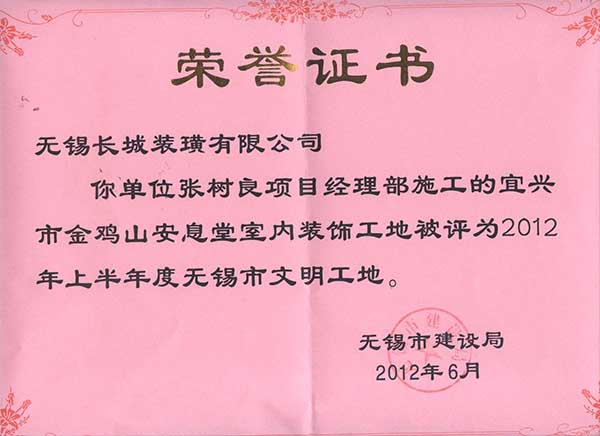 荣誉证书
无锡长城装璜有限公司
你单位张树良项目经理部施工的宜兴
市金鸡山安息堂室内装饰工地被评为2012
年上半年度无锡市文明工地。
无锡市建设局
2012年6月